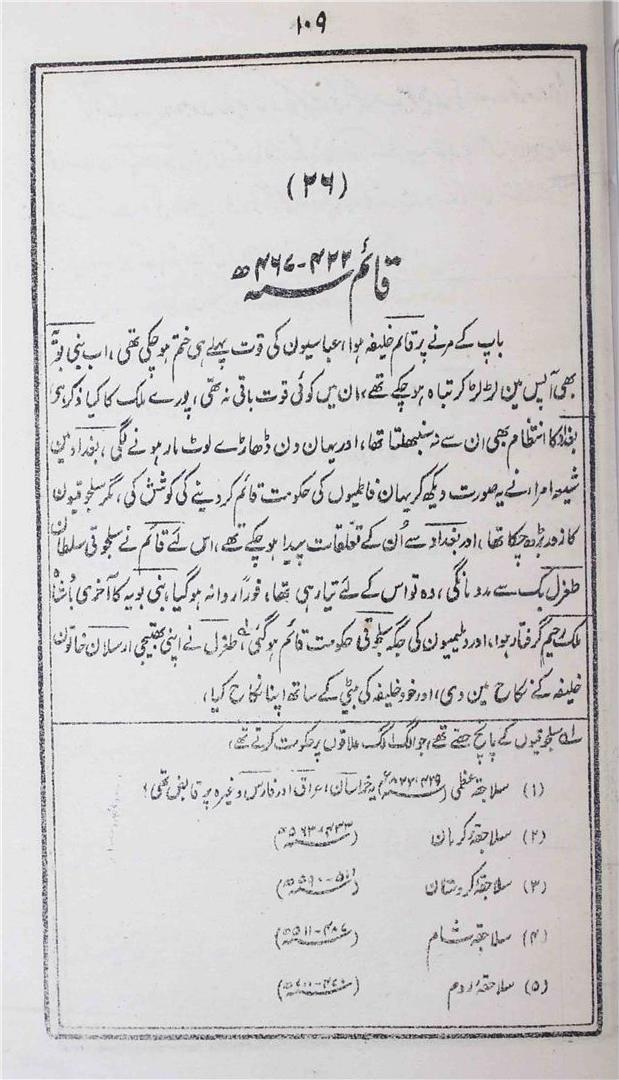 ۱۰۹
(۲۶)
قائم ۴۲۲-۴۶۷ھ
باپ کے مرنے پر قائم خلیفہ ہوا، عباسیون کی قوت پہلے ہی ختم ہو چکی تھی، اب بنی بویہ
بھی آپس مین لڑ لڑ کر تباہ ہو چکے تھے، ان میں کوئی قوت باقی نہ تھی، پورے ملک کا کیا ذکر ہی
بغداد کا انتظام بھی ان سے نہ سنبھلتا تھا، اور یہان دن دھاڑے لوٹ مار ہونے لگی، بغداد مین
شیعہ امراء نے یہ صورت دیکھ کر یہان فاطمیوں کی حکومت قائم کر دینے کی کوشش کی، مگر سلجوقیون
کا زور بڑھ چکا تھا، اور بغداد سے اُن کے تعلقات پیدا ہو چکے تھے، اس لئے قائم نے سلجوقی سلطان
طغرل بک سے مدد مانگی، وہ تو اس کے لئے تیار ہی تھا، فوراً روانہ ہو گیا، بنی بویہ کا آخری بادشاہ
ملک رحیم گرفتار ہوا، اور دیلمیون کی جگہ سلجوقی حکومت قائم ہو گئی، لہ طغرل نے اپنی بھتیجی ارسلان خاتون
خلیفہ کے نکاح مین دی، اور خود خلیفہ کی بیٹی کے ساتھ اپنا نکاح کیا،
لہ سلجوقیوں کے پانچ حصے تھے، جو الگ الگ علاقوں پر حکومت کرتے تھے،
(۱) سلاجقہ عظمی ( ) یہ خراسان، عراق اور فارس، وغیرہ پر قابض تھی؛
(۲) سلاجقہ کرمان (۴۳۳-۵۶۳ھ)
(۳) سلاجقہ کردستان (۵۱۱-۵۹۰ھ)
(۴) سلاجقہ شام (۴۸۷-۵۱۱ھ)
(۵) سلاجقہ روم (۴۷۰-۷۰۰ھ)